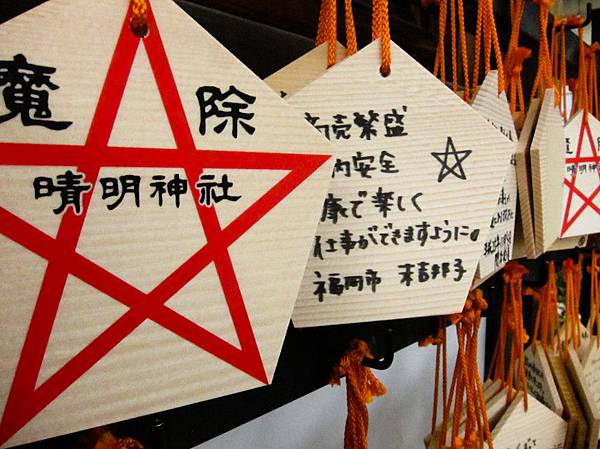 魔除
晴明神社
商売繁盛
内安全
康で楽しく
仕事ができますように。
福岡市 末吉邦子
魔
晴明神